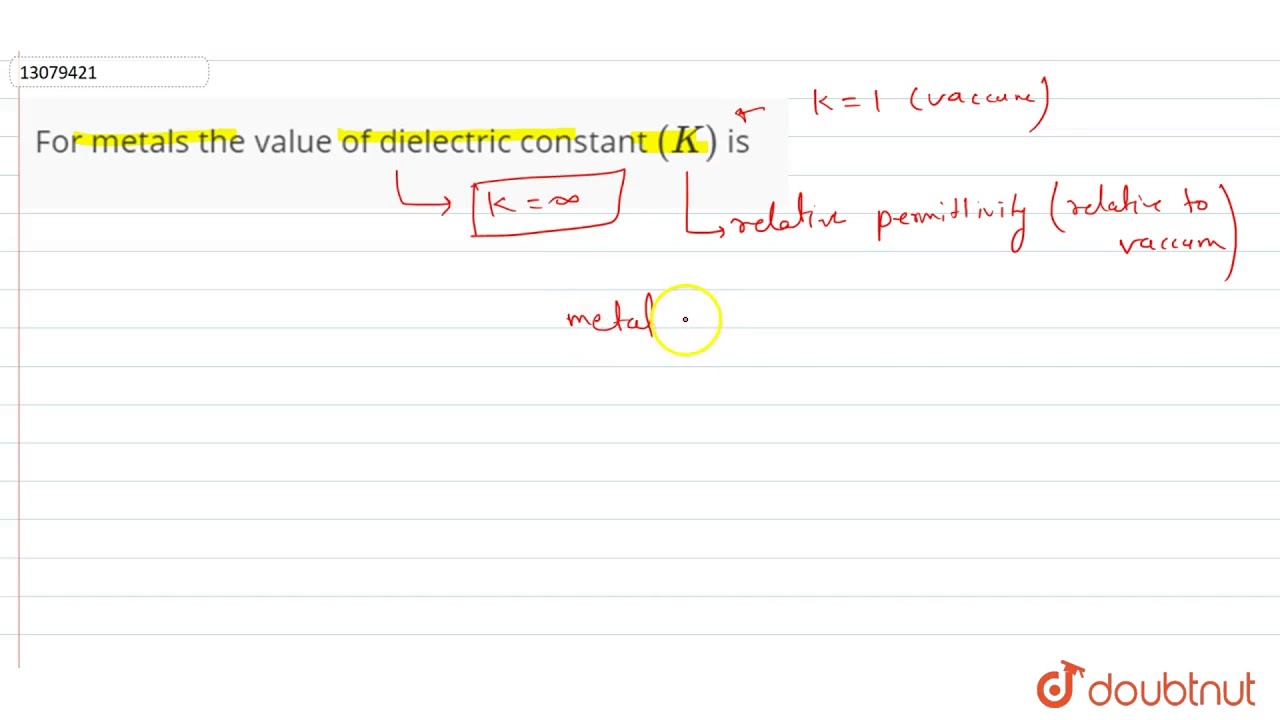 13079421
K = 1 (vaccum)
For metals the value of dielectric constant (K) is
K = ∞
relative permittivity (relative to
vaccum)
metal
doubtnut